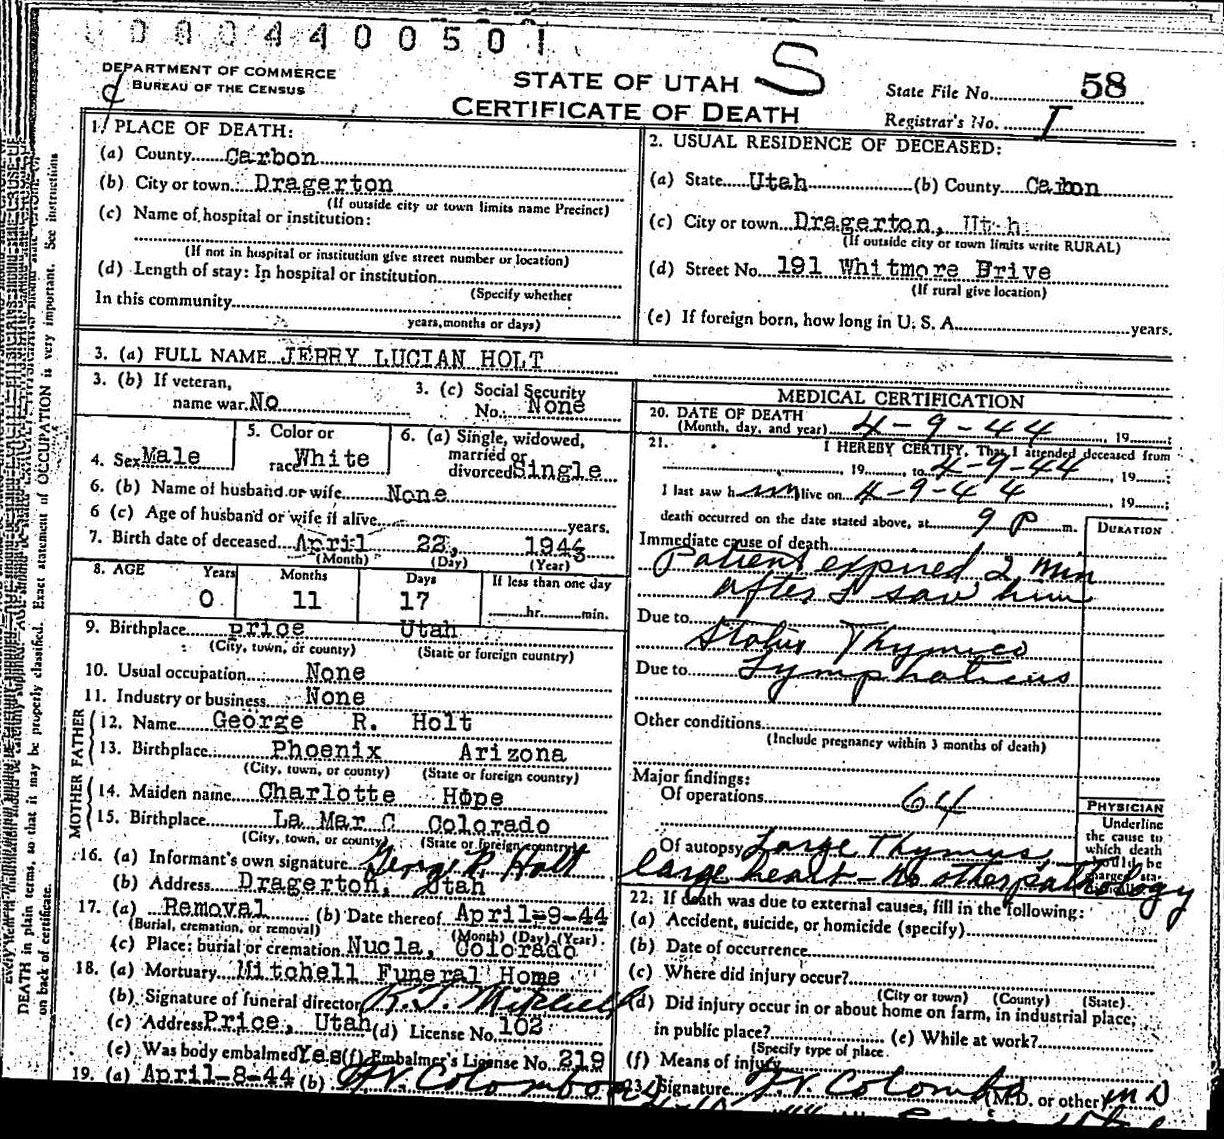 0004400501
DEPARTMENT OF COMMERCE
BUREAU OF THE CENSUS
STATE OF UTAH S
CERTIFICATE OF DEATH
State File No. 58
Registrar's No. I
1. PLACE OF DEATH:
(a) County Carbon
(b) City or town Dragerton
(If outside city or town limits name Precinct)
(c) Name of hospital or institution:
(If not in hospital or institution give street number or location)
(d) Length of stay: In hospital or institution
(Specify whether
In this community
years, months or days)
2. USUAL RESIDENCE OF DECEASED:
(a) State Utah (b) County Cabon
(c) City or town Dragerton, Utah
(If outside city or town limits write RURAL)
(d) Street No. 191 Whitmore Drive
(If rural give location)
(e) If foreign born, how long in U. S. A. years.
3. (a) FULL NAME JERRY LUCIAN HOLT
3. (b) If veteran,
name war No
3. (c) Social Security
No. None
4. Sex Male
5. Color or
race White
6. (a) Single, widowed,
married or
divorced Single
6. (b) Name of husband or wife None
6 (c) Age of husband or wife if alive years.
7. Birth date of deceased April 22, 1943
(Month) (Day) (Year)
8. AGE Years Months Days If less than one day
0 11 17 hr. min.
9. Birthplace Price Utah
(City, town, or county) (State or foreign country)
10. Usual occupation None
11. Industry or business None
FATHER
12. Name George R. Holt
13. Birthplace Phoenix Arizona
(City, town, or county) (State or foreign country)
MOTHER
14. Maiden name Charlotte Hope
15. Birthplace La Mar C Colorado
(City, town, or county) (State or foreign country)
16. (a) Informant's own signature George R. Holt
(b) Address Dragerton, Utah
17. (a) Removal (b) Date thereof April-9-44
(Burial, cremation, or removal) (Month) (Day) (Year)
(c) Place: burial or cremation Nucla, Colorado
18. (a) Mortuary Mitchell Funeral Home
(b) Signature of funeral director R. J. Mitchell
(c) Address Price, Utah (d) License No. 102
(e) Was body embalmed Yes (f) Embalmer's License No. 219
19. (a) April-8-44 (b) F. V. Colombo
MEDICAL CERTIFICATION
20. DATE OF DEATH
(Month, day, and year) 4-9-44, 19
21. I HEREBY CERTIFY, That I attended deceased from
19 to 4-9-44, 19
I last saw h im alive on 4-9-44 19
death occurred on the date stated above, at 9 P m.
DURATION
Immediate cause of death
Patient expired 2 min
after I saw him
Due to
Status Thymico
Due to Lymphaticus
Other conditions
(Include pregnancy within 3 months of death)
Major findings:
Of operations 64
Of autopsy Large Thymus,
large heart - no other pathology
PHYSICIAN
Underline
the cause to
which death
should be
charged sta-
22. If death was due to external causes, fill in the following:
(a) Accident, suicide, or homicide (specify)
(b) Date of occurrence
(c) Where did injury occur?
(City or town) (County) (State)
(d) Did injury occur in or about home on farm, in industrial place,
in public place? (e) While at work?
(Specify type of place
(f) Means of injury
23. Signature F. V. Colombo (M.D. or other) M D
DEATH in plain terms, so that it may be properly classified. Exact statement of OCCUPATION is very important. See instructions
on back of certificate.